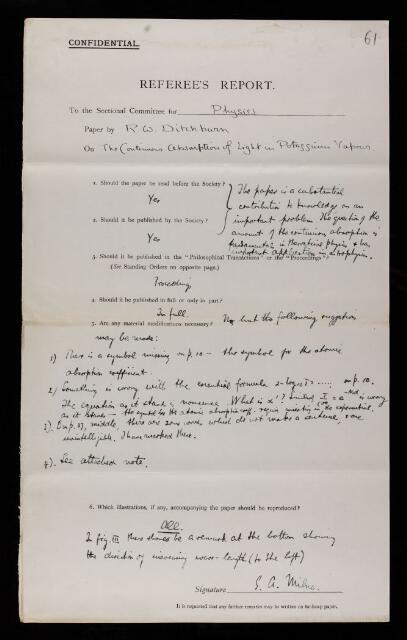 CONFIDENTIAL.
61
REFEREE'S REPORT.
To the Sectional Committee for Physics
Paper by R. W. Ditchburn
On The Continuous Absorption of Light in Potassium Vapour
1. Should the paper be read before the Society?
Yes
2. Should it be published by the Society?
Yes
The paper is a substantial
contribution to knowledge on an
important problem. The question of the
amount of the continuous absorption is
fundamental in theoretical physics & has
important application in astrophysics.
3. Should it be published in the "Philosophical Transactions" or the "Proceedings"?
(See Standing Orders on opposite page.)
Proceedings
4. Should it be published in full or only in part?
In full.
5. Are any material modifications necessary? No, but the following suggestions
may be made:
1) There is a symbol missing on p. 10 — the symbol for the atomic
absorption coefficient.
2) Something is wrong with the essential formula ..... on p. 10.
The equation as it stands is nonsense. What is x'? is wrong
as it stands — the symbol for the atomic absorption coeff. requires inserting in the exponential.
3) On p. middle, there are some words which do not make a sentence, & are
unintelligible. I have marked these.
4). See attached note.
6. Which illustrations, if any, accompanying the paper should be reproduced?
All.
In fig. III there should be a remark at the bottom showing
the direction of increasing wave-length (to the left)
Signature E. A. Milne.
It is requested that any further remarks may be written on foolscap paper.